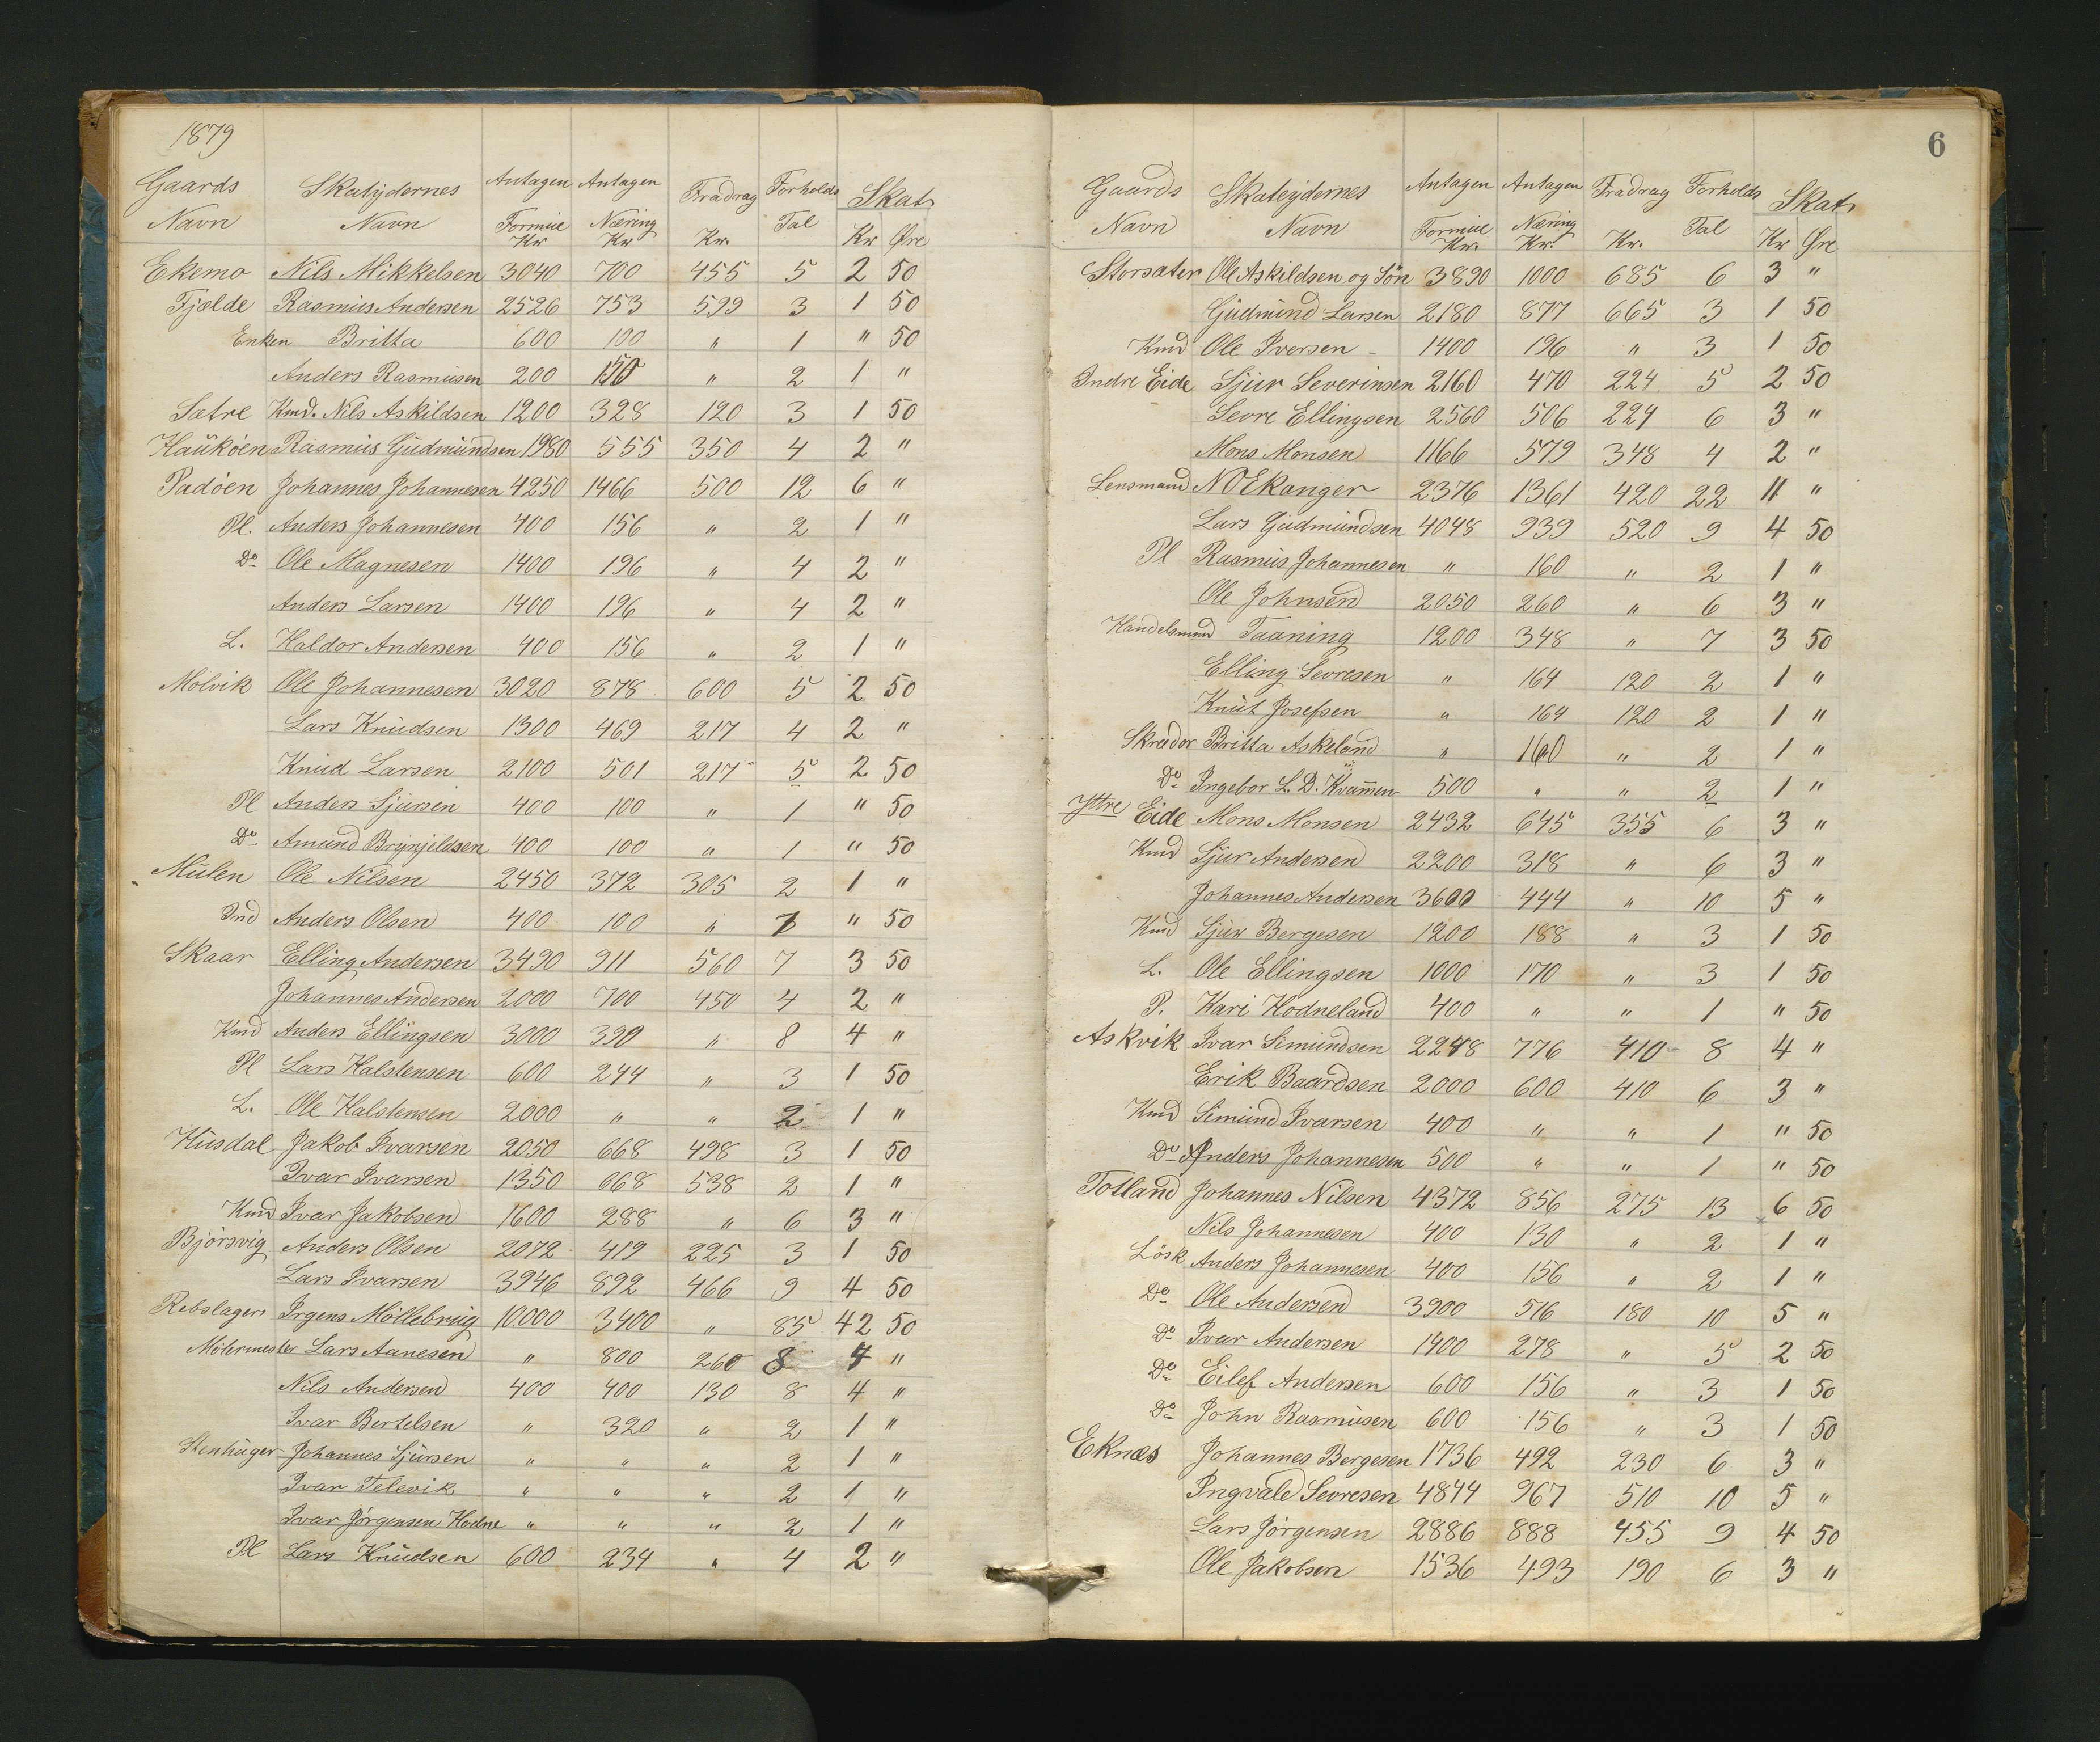 1879
Gaards Navn Skatydernes Navn Antagen Formue Kr Antagen Næring Kr Fradrag Kr. Forholds Tal Skat Kr Øre
Ekemo Nils Mikkelsen 3040 700 455 5 2 50
Fjælde Rasmus Andersen 2526 753 599 3 1 50
Enken Britta 600 100 " 1 " 50
Anders Rasmusen 200 150 " 2 1 "
Sætre Kmd. Nils Askildsen 1200 328 120 3 1 50
Haukøen Rasmus Gudmundsen 1980 555 350 4 2 "
Padøen Johannes Johannesen 4250 1466 500 12 6 "
Pl. Anders Johannesen 400 156 " 2 1 "
Do Ole Magnesen 1400 196 " 4 2 "
Anders Larsen 1400 196 " 4 2 "
L. Haldor Andersen 400 156 " 2 1 "
Molvik Ole Johannesen 3020 878 600 5 2 50
Lars Knudsen 1300 469 217 4 2 "
Knud Larsen 2100 501 217 5 2 50
Pl Anders Sjursen 400 100 " 1 " 50
Do Amund Brynjeldsen 400 100 " 1 " 50
Mulen Ole Nilsen 2450 372 305 2 1 "
Ind Anders Olsen 400 100 " 1 " 50
Skaar Elling Andersen 3490 911 560 7 3 50
Johannes Andersen 2000 700 450 4 2 "
Kmd Anders Ellingsen 3000 390 " 8 4 "
Pl Lars Halstensen 600 244 " 3 1 50
L. Ole Halstensen 2000 " " 2 1 "
Husdal Jakob Ivarsen 2050 668 498 3 1 50
Ivar Ivarsen 1350 668 538 2 1 "
Kmd Ivar Jakobsen 1600 288 " 6 3 "
Bjørsvig Anders Olsen 2072 419 225 3 1 50
Lars Ivarsen 3946 892 466 9 4 50
Rebslager Irgens Möllebrug 10.000 3400 " 85 42 50
Möllermester Lars Aanesen " 800 260 8 4 "
Nils Andersen 400 400 130 8 4 "
Ivar Bertelsen " 320 " 2 1 "
Stenhuger Johannes Sjursen " " " 2 1 "
Ivar Televik " " " 2 1 "
Ivar Jørgensen Hodne " " " 2 1 "
Pl Lars Knudsen 600 234 " 4 2 "
6
Gaards Navn Skateydernes Navn Antagen Formue Kr. Antagen Næring Kr. Fradrag Kr. Forholds Tal Skat Kr Øre
Storsæter Ole Askildsen og Sön 3890 1000 685 6 3 "
Gudmund Larsen 2180 877 665 3 1 50
Kmd Ole Iversen 1400 196 " 3 1 50
Indre Eide Sjur Severinsen 2160 470 224 5 2 50
Sevre Ellingsen 2560 506 224 6 3 "
Mons Monsen 1166 579 348 4 2 "
Lensmand N O Ekanger 2376 1361 420 22 11 "
Lars Gudmundsen 4048 939 520 9 4 50
Pl Rasmus Johannesen " 160 " 2 1 "
Ole Johnsen 2050 260 " 6 3 "
Handelsmand Taaning 1200 348 " 7 3 50
Elling Sevresen " 164 120 2 1 "
Knut Josefsen " 164 120 2 1 "
Skrædor Britta Askeland " 160 " 2 1 "
Do Ingebor L. D. Kvammen 500 " " 2 1 "
Yttre Eide Mons Monsen 2432 645 355 6 3 "
Kmd Sjur Andersen 2200 318 " 6 3 "
Johannes Andersen 3600 444 " 10 5 "
Kmd Sjur Bergesen 1200 188 " 3 1 50
L. Ole Ellingsen 1000 170 " 3 1 50
P. Kari Hodneland 400 " " 1 " 50
Askvik Ivar Simundsen 2248 776 410 8 4 "
Erik Baardsen 2000 600 410 6 3 "
Kmd Simund Ivarsen 400 " " 1 " 50
Do Anders Johannesen 500 " " 1 " 50
Totland Johannes Nilsen 4372 856 275 13 6 50
Nils Johannesen 400 130 " 2 1 "
Lösk Anders Johannesen 400 156 " 2 1 "
Do Ole Andersen 3900 516 180 10 5 "
Do Ivar Andersen 1400 278 " 5 2 50
Do Eilef Andersen 600 156 " 3 1 50
Do John Rasmusen 600 156 " 3 1 50
Eknæs Johannes Bergesen 1736 492 230 6 3 "
Ingvald Sevresen 4844 967 510 10 5 "
Lars Jørgensen 2886 888 455 9 4 50
Ole Jakobsen 1536 493 190 6 3 "